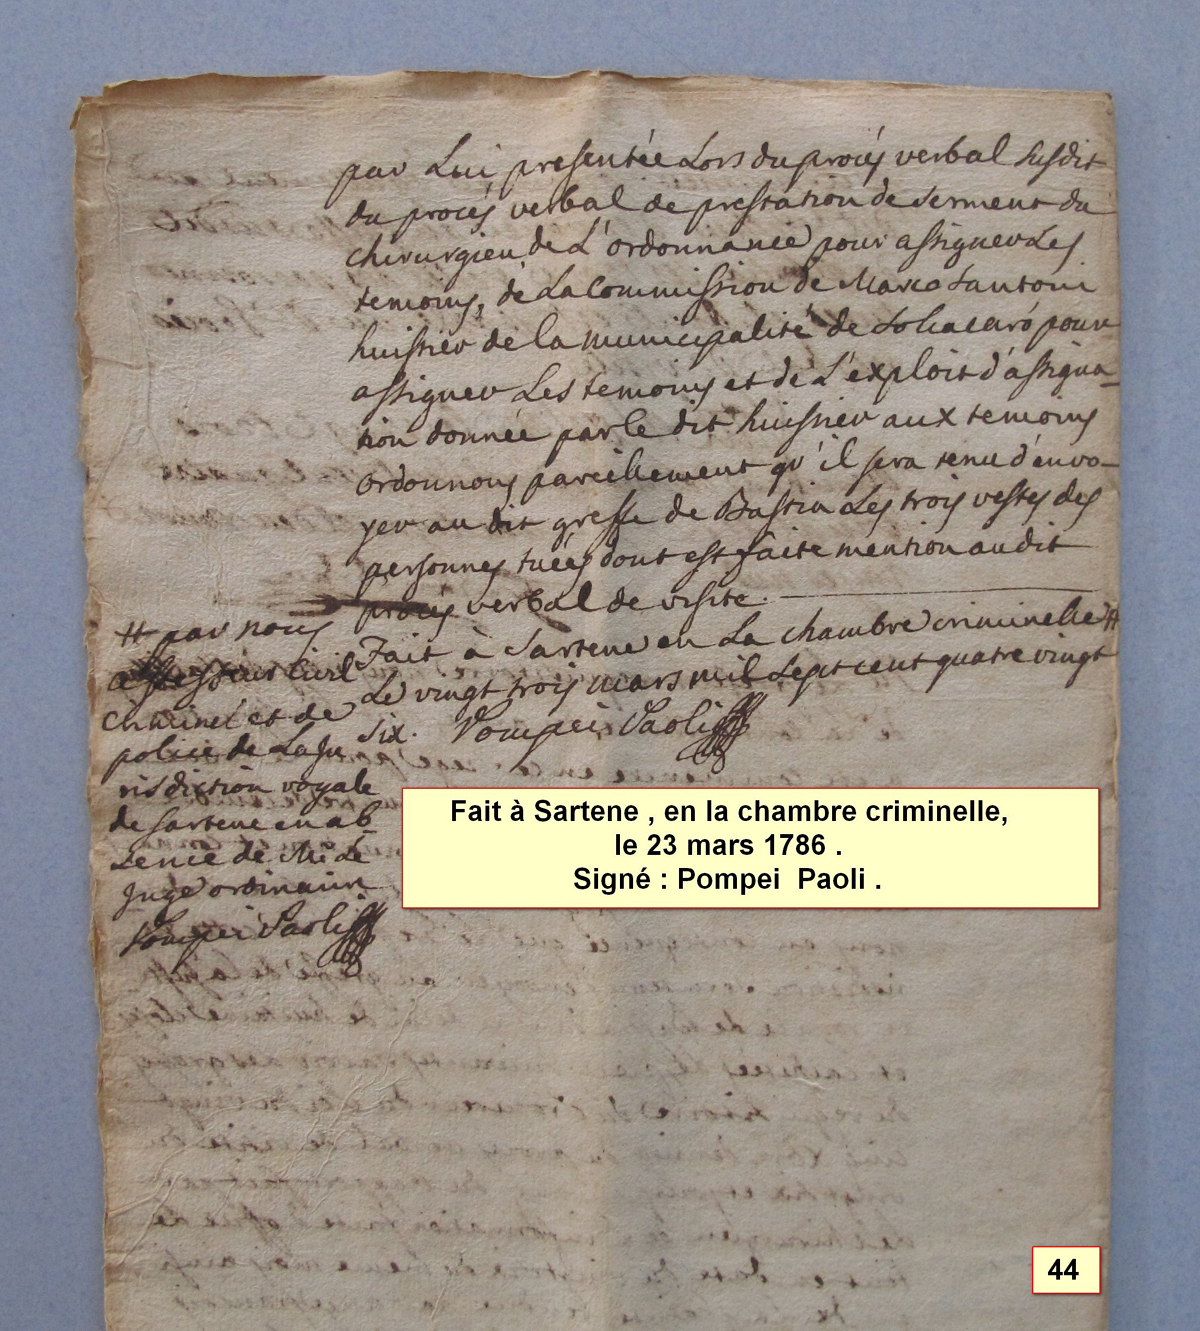 par Lui presentée Lors du procés verbal susdit
du procés verbal de prestation de serment du
chirurgien de L'ordonnance pour assigner Les
temoins, de La Commission de Marco Santoni
huissier de la municipalité de Solacaró pour
assigner Les temoins et de L'exploit d'assigna-
tion donnée par le dit huissier aux temoins
ordonnons pareillement qu'il sera tenu d'envo-
yer au dit greffe de Bastia Les trois vestes des
personnes tuées dont est faite mention audit
procés verbal de visite.
Fait à Sartene en La chambre criminelle #
Le vingt trois mars mil sept cent quatre vingt
six. Pompei Paoli
# par nous
assesseur Civil
Criminel et de
police de La Ju
risdiction royale
de Sartene en ab-
sence de Mr. Le
Juge ordinaire
Pompei Paoli
Fait à Sartene , en la chambre criminelle,
le 23 mars 1786 .
Signé : Pompei Paoli .
44